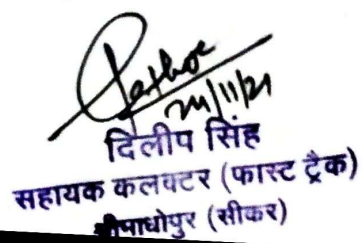 24/11/21
दिलीप सिंह
सहायक कलक्टर (फास्ट ट्रैक)
श्रीमाधोपुर (सीकर)